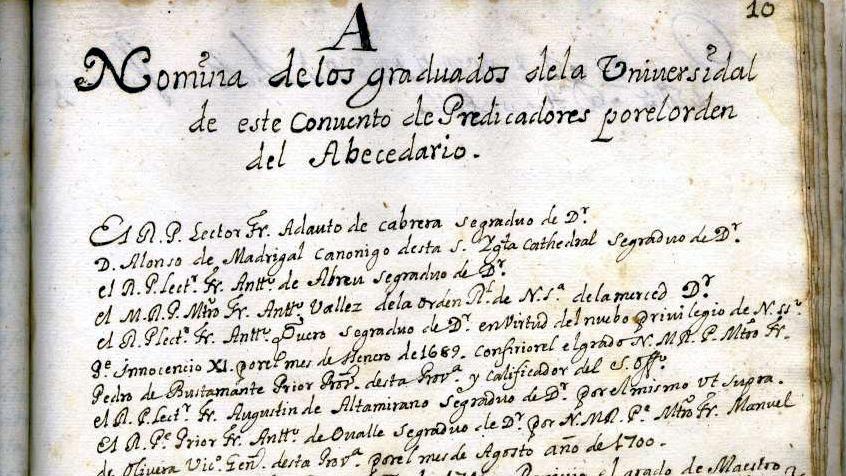 10
A
Nomina delos graduados dela Universidad
de este Convento de Predicadores porel orden
del Abecedario.
El R. P. Lector Fr. Adauto de Cabrera segraduo de Dr.
D. Alonso de Madrigal Canonigo desta S. Ygta Cathedral segraduo de Dr.
el R. P. lectr. Fr. Antto. de Abreu segraduo de Dr.
el M. R. P. Mtro Fr. Antto. Vallez dela orden Rl. de N. Sa. dela merced Dr.
el R. P. lectr. Fr. Antto. segraduo de Dr. en virtud del nuebo privilegio de N. SSr.
Pe. Innocencio XI. porel mes de Henero de 1689. Confiriorel grado N. M. R. P. Mtro Fr.
Pedro de Bustamante Prior Prov. desta Prova. y Calificador del S. Offo.
el R. P. Lectr. Fr. Augustin de Altamirano segraduo de Dr. por el mismo Vt supra.
El R. Pe. Prior Fr. Antto. de Ovalle segraduo de Dr. por N. M. R. Pe. Mtro Fr. Manuel
de Olivera Vico. Genl. desta Prova. porel mes de Agosto año de 1700.
el grado de Maestro